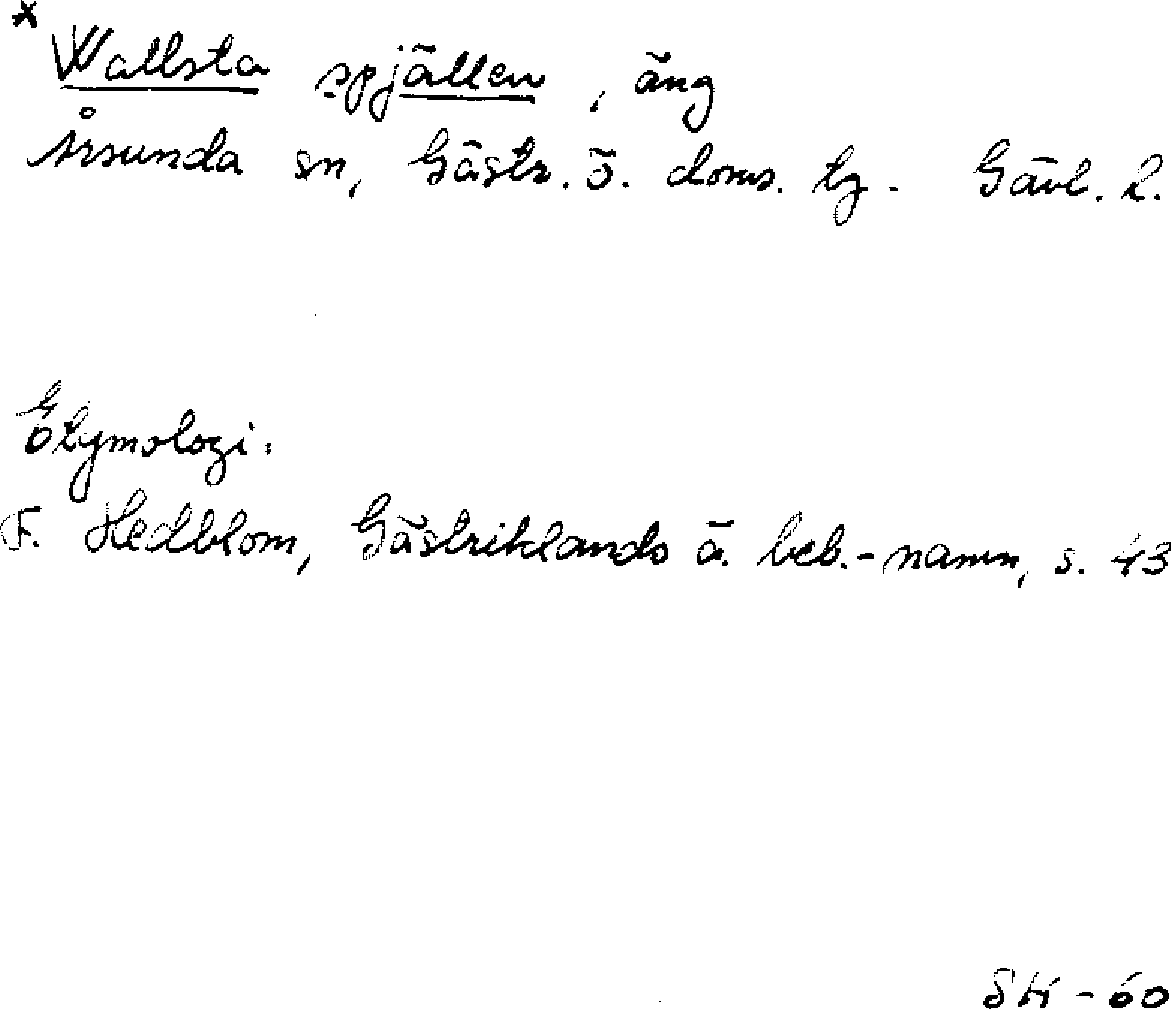 * Wallsta spjällen, äng
Årsunda sn, Gästr. ö. doms. tg. Gävl. l.
Etymologi:
F. Hedblom, Gästriklands ä. beb.-namn, s. 43
SH - 60